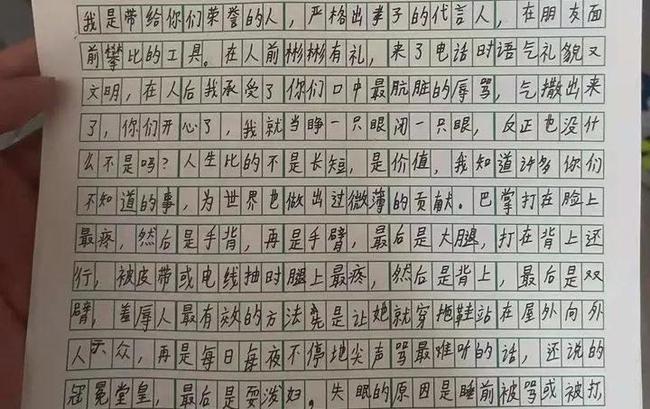 我是带给你们荣誉的人，严格出孝子的代言人，在朋友面
前攀比的工具。在人前彬彬有礼，来了电话时语气礼貌又
文明，在人后我承受了你们口中最肮脏的辱骂，气撒出来
了，你们开心了，我就当睁一只眼闭一只眼，反正也没什
么不是吗？人生比的不是长短，是价值，我知道许多你们
不知道的事，为世界也做出过微薄的贡献。巴掌打在脸上
最疼，然后是手背，再是手臂，最后是大腿，打在背上还
行，被皮带或电线抽时腿上最疼，然后是背上，最后是双
臂，羞辱人最有效的方法竟是让她就穿拖鞋站在屋外向外
人示众，再是每日每夜不停地尖声骂最难听的话，还说的
冠冕堂皇，最后是耍泼妇，失眠的原因是睡前被骂或被打